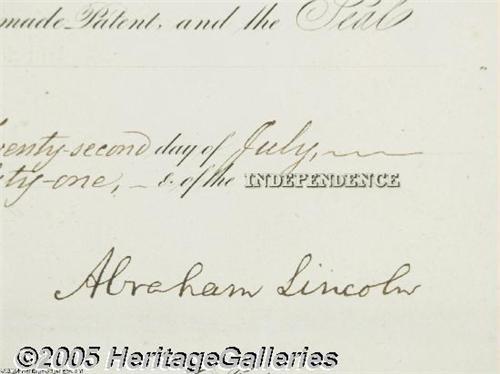 made Patent, and the Seal
twenty-second day of July,
ty-one, & of the INDEPENDENCE
Abraham Lincoln
©2005 HeritageGalleries